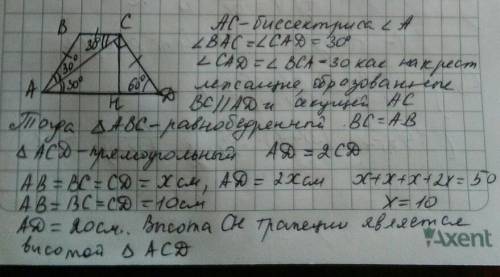 AC - биссектриса ∠A
∠BAC = ∠CAD = 30°
∠CAD = ∠BCA = 30 как накрест
лежащие, образованные
BC || AD и секущей AC
Тогда △ABC - равнобедренный BC = AB
△ACD - прямоугольный AD = 2CD
AB = BC = CD = x см, AD = 2x см x + x + x + 2x = 50
AB = BC = CD = 10 см x = 10
AD = 20 см. Высота CH трапеции является
высотой △ACD
B C
30°
30°
30°
60°
A H D
Axent